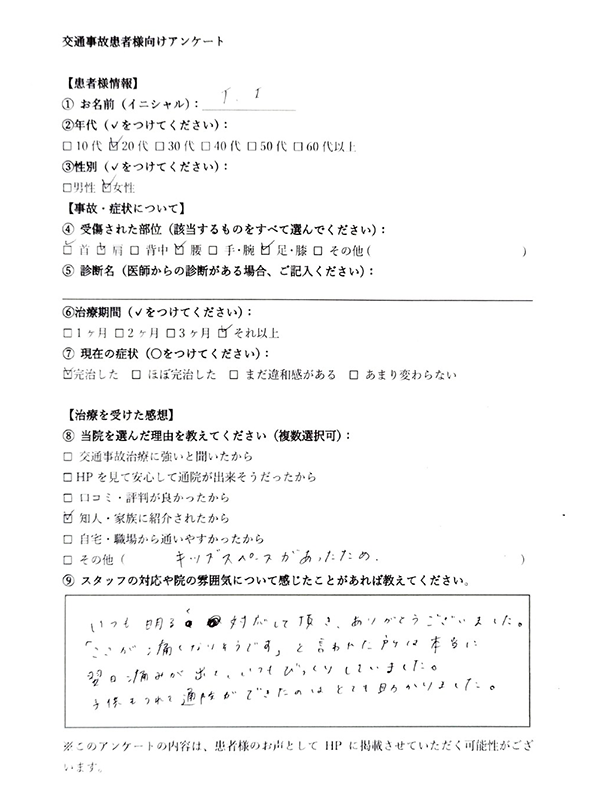 交通事故患者様向けアンケート
【患者様情報】
① お名前（イニシャル）： T. I
②年代（✓をつけてください）：
□10代 ☑20代 □30代 □40代 □50代 □60代以上
③性別（✓をつけてください）：
□男性 ☑女性
【事故・症状について】
④ 受傷された部位（該当するものをすべて選んでください）：
☑ 首 ☑ 肩 □ 背中 ☑ 腰 □ 手・腕 ☑ 足・膝 □ その他（ ）
⑤ 診断名（医師からの診断がある場合、ご記入ください）：
⑥治療期間（✓をつけてください）：
□1ヶ月 □2ヶ月 □3ヶ月 ☑ それ以上
⑦ 現在の症状（○をつけてください）：
☑完治した □ ほぼ完治した □ まだ違和感がある □ あまり変わらない
【治療を受けた感想】
⑧ 当院を選んだ理由を教えてください（複数選択可）：
□ 交通事故治療に強いと聞いたから
□HPを見て安心して通院が出来そうだったから
□ 口コミ・評判が良かったから
☑ 知人・家族に紹介されたから
□ 自宅・職場から通いやすかったから
□ その他（ キッズスペースがあったため. ）
⑨ スタッフの対応や院の雰囲気について感じたことがあれば教えてください。
いつも明るく対応して頂き、ありがとうございました。
「ここが痛くなりそうです」と言われた所は本当に
翌日痛みが出て、いつもびっくりしていました。
子供もつれて通院ができたのはとても助かりました。
※このアンケートの内容は、患者様のお声として HP に掲載させていただく可能性がござ
います。